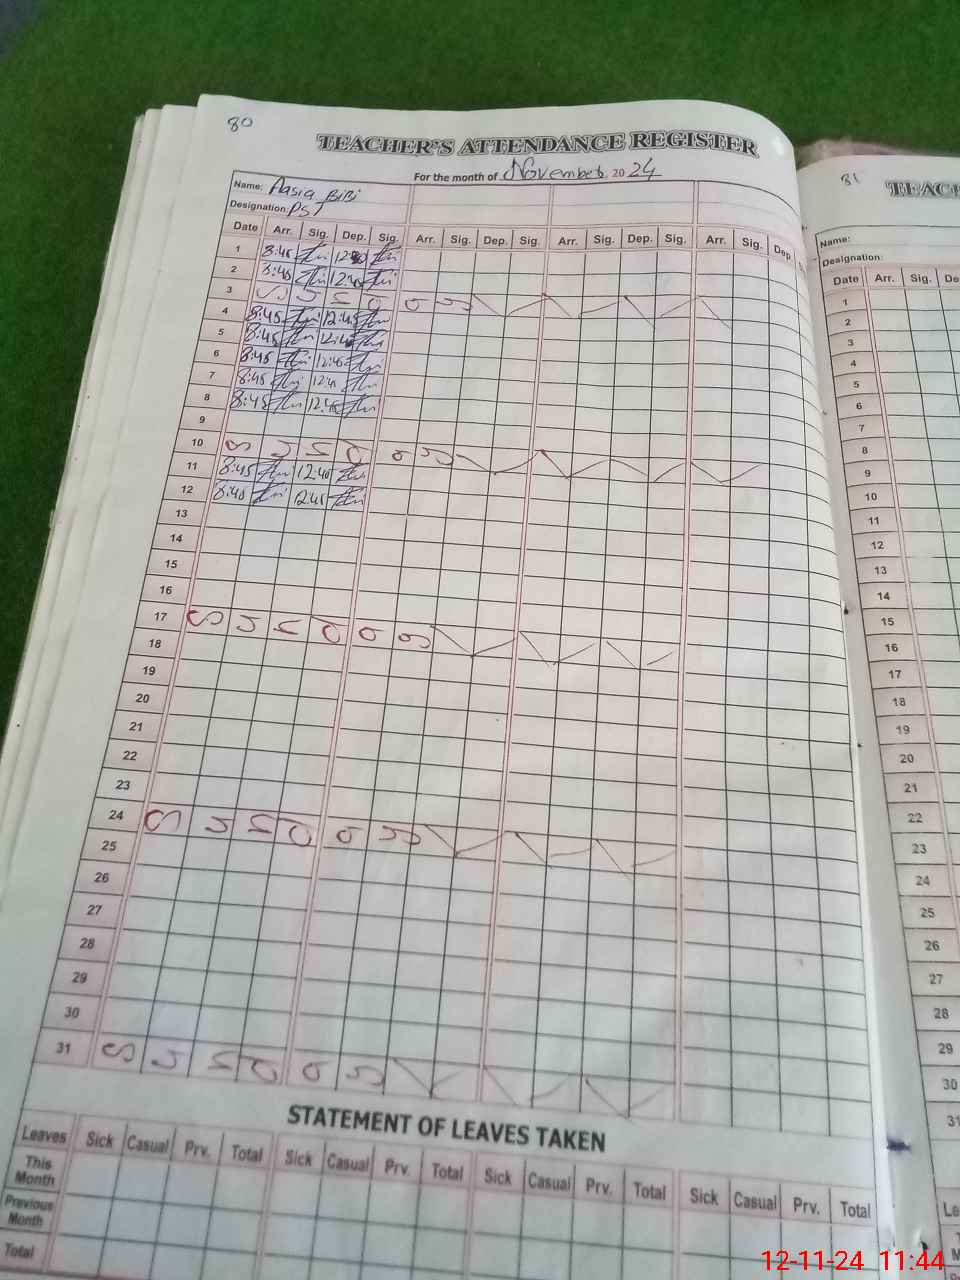 80
TEACHER'S ATTENDANCE REGISTER
For the month of November 2024
Name: Aasia BiBi
Designation: PST
Date Arr. Sig. Dep. Sig. Arr. Sig. Dep. Sig. Arr. Sig. Dep. Sig. Arr. Sig. Dep.
1 8:45
2 8:45 12:45
3 S U N D a y
4 8:45 12:45
5 8:45 12:45
6 8:45 12:45
7 8:45 12:45
8 8:45 12:45
9
10 S U N D a y
11 8:45 12:45
12 8:45 12:45
13
14
15
16
17 S U N D a y
18
19
20
21
22
23
24 S U N D a y
25
26
27
28
29
30
31 S U N D a y
STATEMENT OF LEAVES TAKEN
Leaves Sick Casual Prv. Total Sick Casual Prv. Total Sick Casual Prv. Total Sick Casual Prv. Total
This Month
Previous Month
Total
81
TEACH
Name:
Designation:
Date Arr. Sig. De
1
2
3
4
5
6
7
8
9
10
11
12
13
14
15
16
17
18
19
20
21
22
23
24
25
26
27
28
29
30
31
Le
12-11-24 11:44